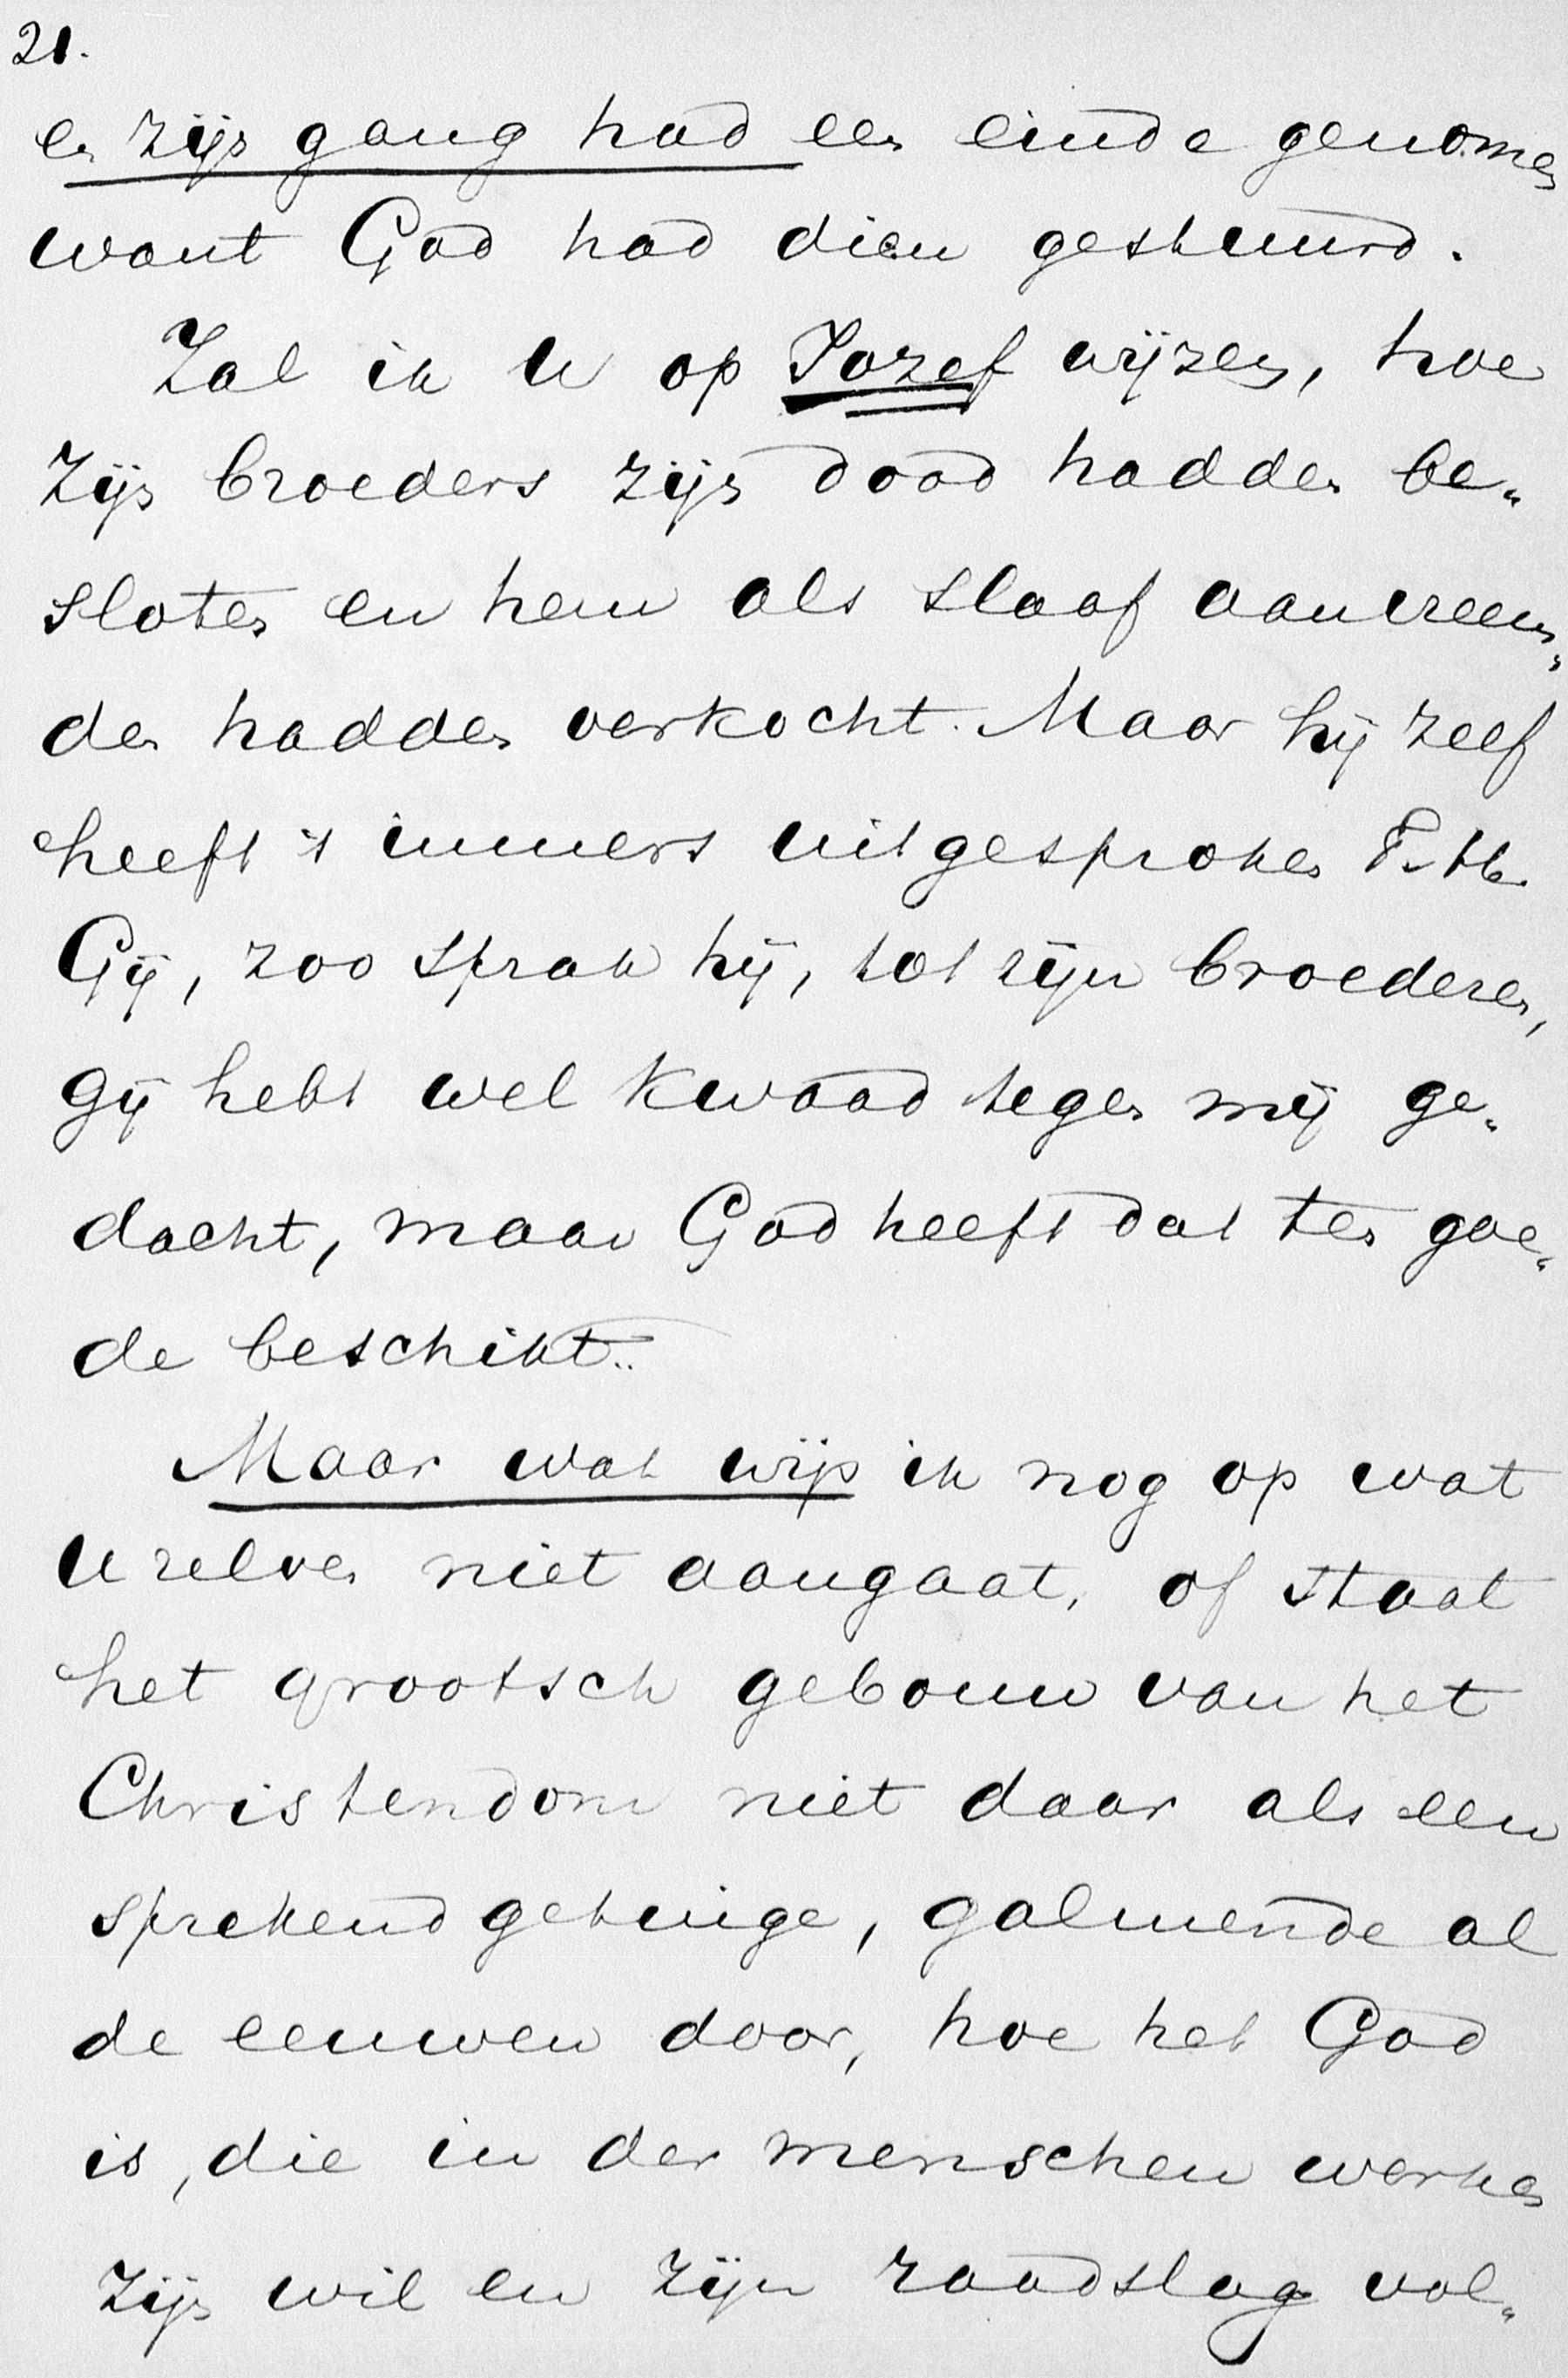 21.
en zijn gang had een einde genomen
want God had dien gestuurd.
Zal ik U op Jozef wijzen, hoe
zijn broeders zijn dood hadden be„
sloten en hem als slaaf aan vreem„
den hadden verkocht. Maar hij zelf
heeft 't immers uitgesproken
Gij, zoo sprak hij, tot zijn broederen,
gij hebt wel kwaad tegen mij ge„
dacht, maar God heeft dat ten goe„
de beschikt..
Maar wat wijs ik nog op wat
U zelven niet aangaat, of staat
het grootsch gebouw van het
Christendom niet daar als een
sprekend getuige, galmende al
de eeuwen door, hoe het God
is, die in der menschen werken
zijn wil en zijn raadslag vol„